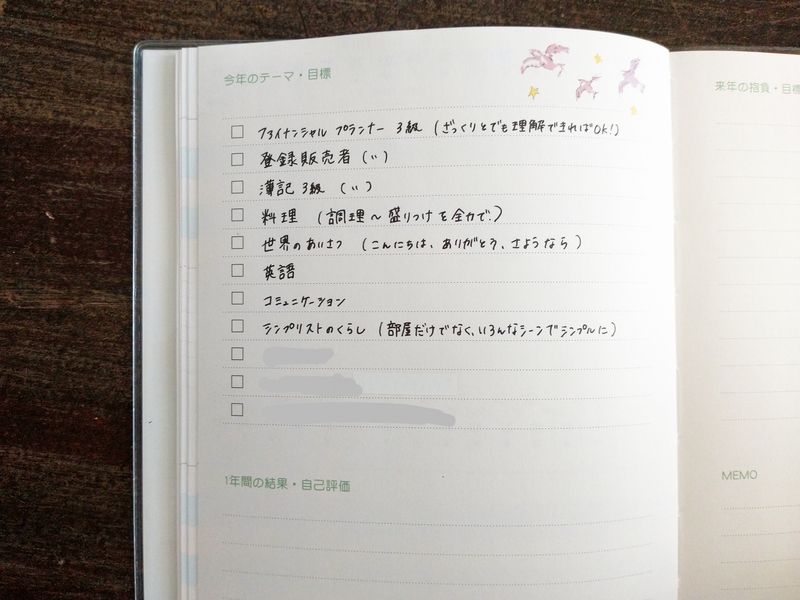 今年のテーマ・目標
ファイナンシャル プランナー 3級 (ざっくりとでも理解できればOK!)
登録販売者 (〃)
簿記 3級 (〃)
料理 (調理～盛りつけを全力で。)
世界のあいさつ (こんにちは、ありがとう、さようなら)
英語
コミュニケーション
シンプリストのくらし (部屋だけでなく、いろんなシーンでシンプルに)
1年間の結果・自己評価
来年の抱負・目標
MEMO